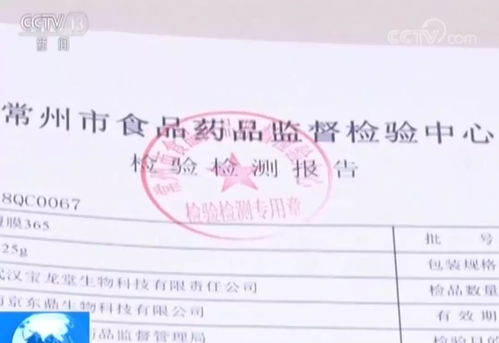 CCTV 13
新闻
CCTV.com
常州市食品药品监督检验中心
检验检测报告
检验检测专用章
8QC0067
膜365
批 号
25g
包装规格
武汉宝龙堂生物科技有限责任公司
检品数量
南京东鼎生物科技有限公司
有效期
药品监督管理局
检验目的